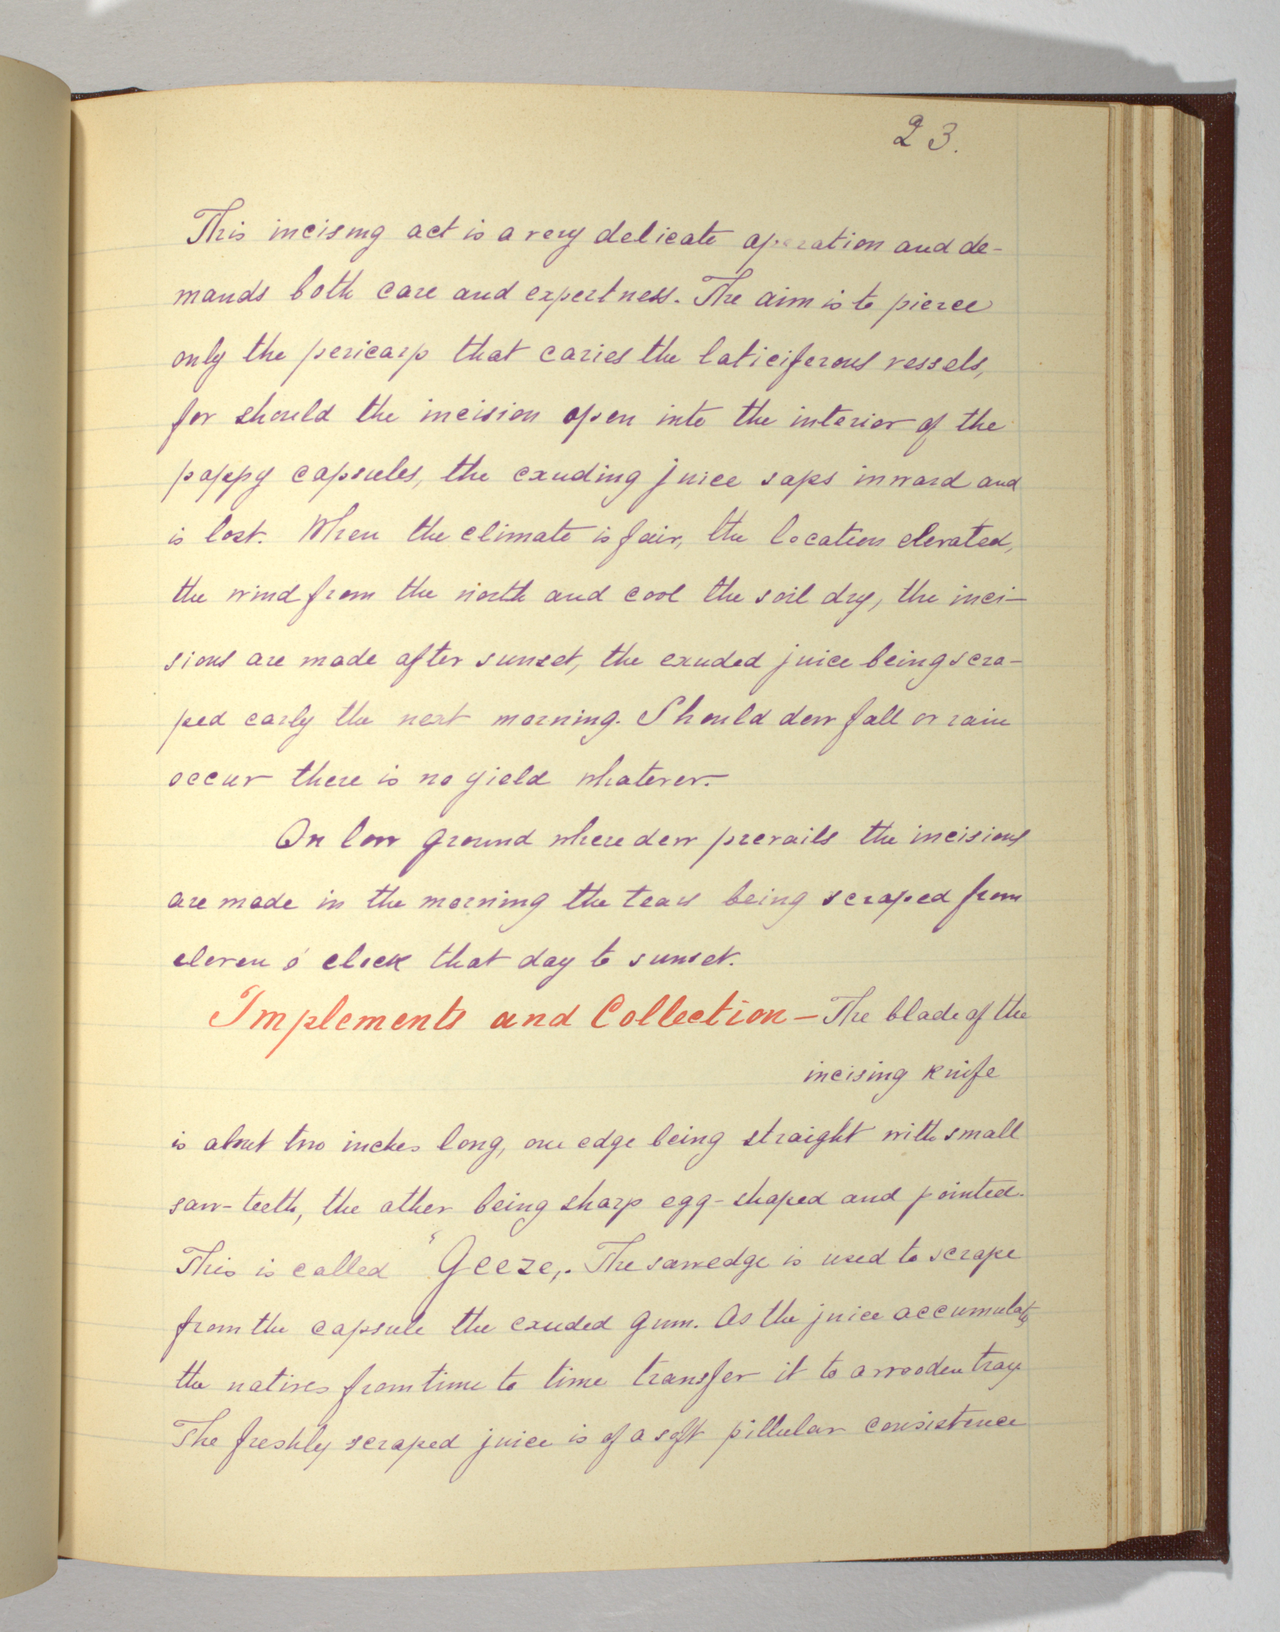 23.
This incising act is a very delicate operation and de-
mands both care and expertness. The aim is to pierce
only the pericarp that caries the laticiferous vessels,
for should the incision open into the interior of the
poppy capsules, the exuding juice saps inward and
is lost. When the climate is fair, the location elevated,
the wind from the north and cool the soil dry, the inci-
sions are made after sunset, the exuded juice being scra-
ped early the next morning. Should dew fall or rain
occur there is no yield whatever.
On low ground where dew prevails the incisions
are made in the morning the tears being scraped from
eleven o' clock that day to sunset.
Implements and Collection — The blade of the
incising knife
is about two inches long, one edge being straight with small
saw-teeth, the other being sharp egg-shaped and pointed.
This is called "Geeze,. The sawedge is used to scrape
from the capsule the exuded gum. As the juice accumulates
the natives from time to time transfer it to a wooden tray
The freshly scraped juice is of a soft pillular consistence